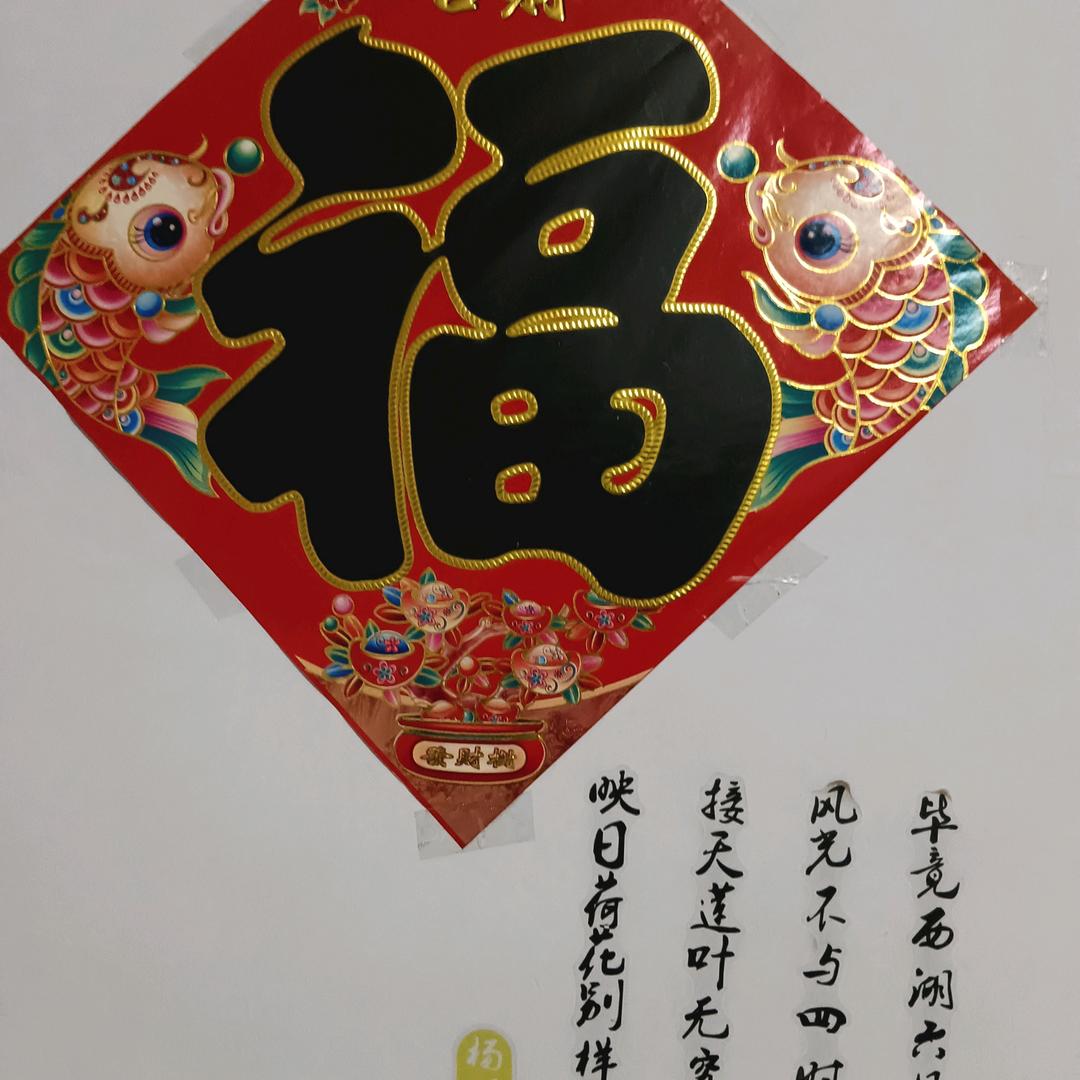 福
發財樹
毕竟西湖六
风光不与四时
接天莲叶无穷
映日荷花别样
杨